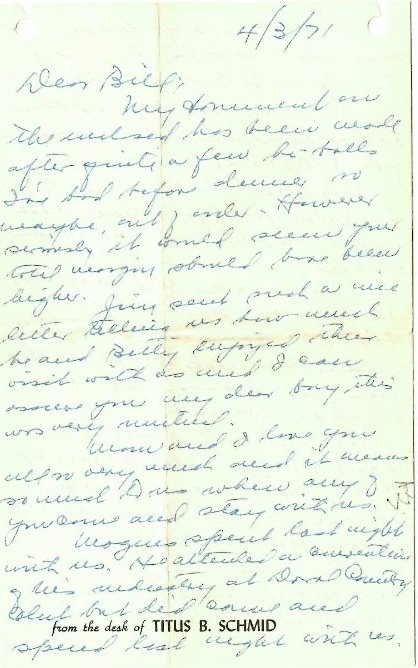 4/3/71
Dear Bill;
My comment on
the enclosed has been made
after quite a few hi-balls
I've had before dinner so
maybe, out of order. However
seriously it would seem your
total margin should have been
higher. Jim sent such a nice
letter telling us how much
he and Betty enjoyed their
visit with us and I can
assure you my dear boy, this
was very mutual.
Mom and I love you
all so very much and it means
so much to us when any of
you come and stay with us.
spent last night
with us. He attended a convention
of his industry at Doral Country
Club but did come and
from the desk of TITUS B. SCHMID
spend last night with us.